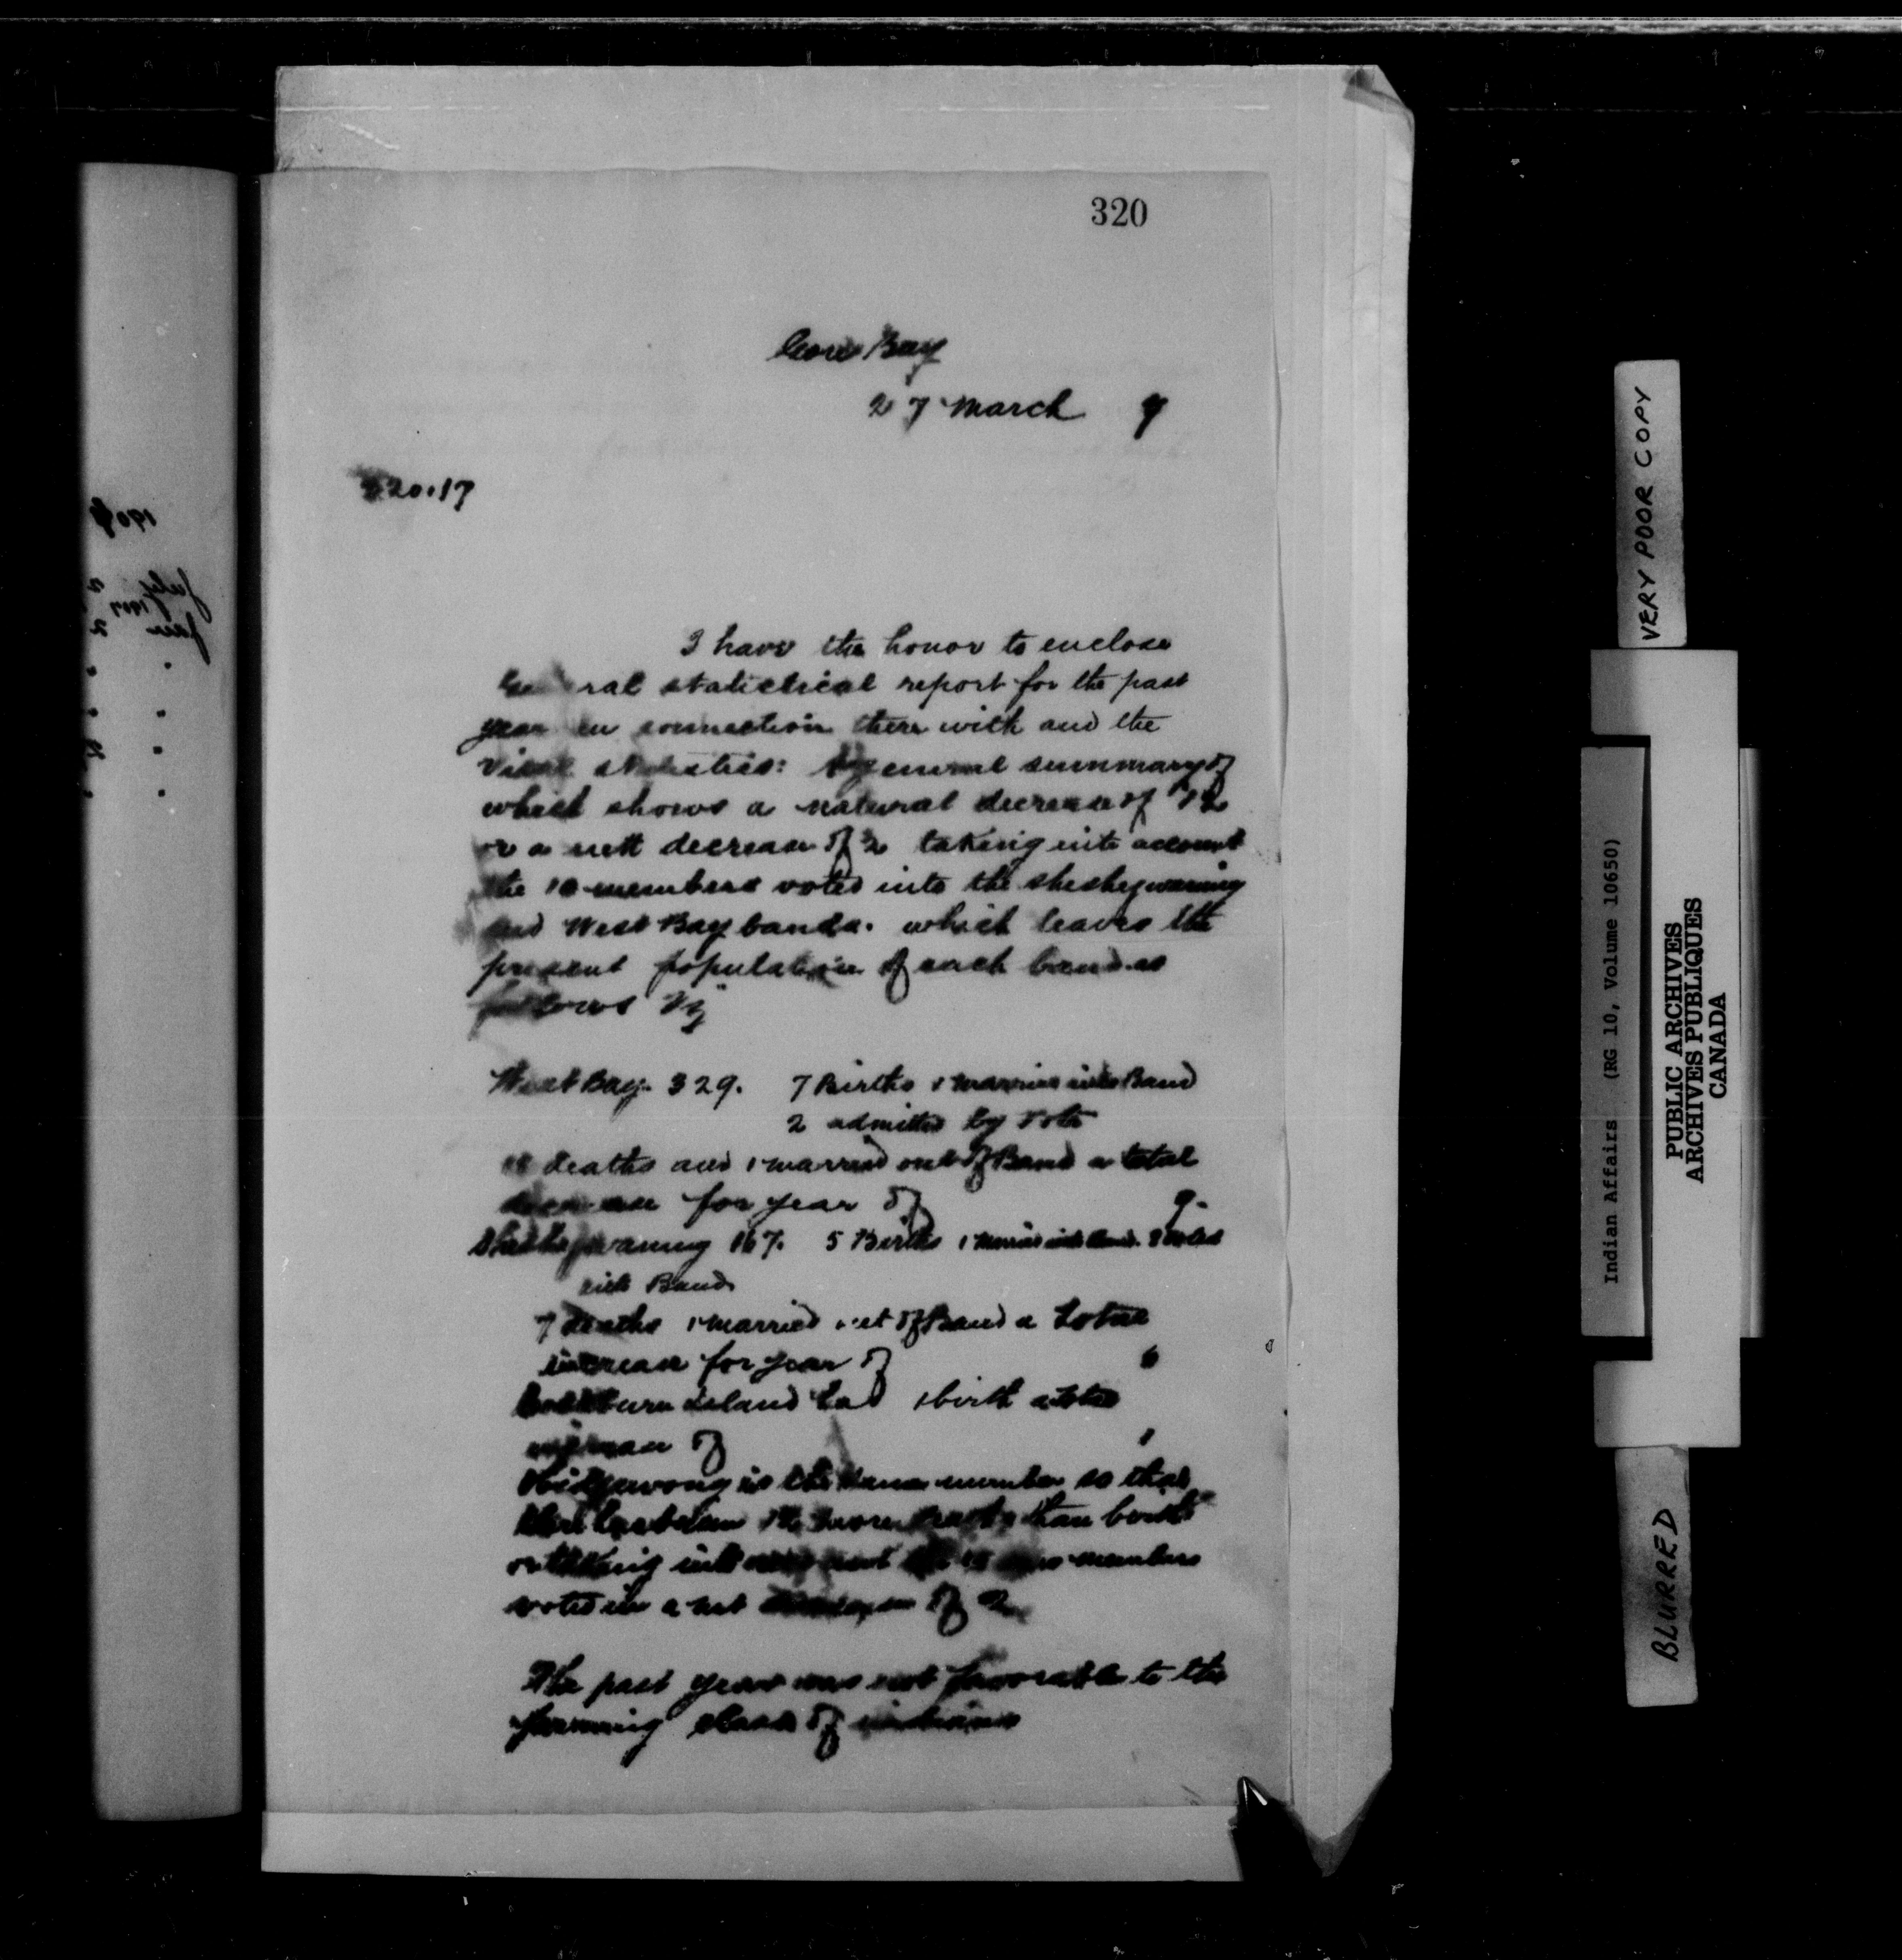 320
Gore Bay
27 March 7
320.17
I have the honor to enclose
General statistical report for the past
year in connection there with and the
Vital statistics: A general summary of
which shows a natural decrease of 12
or a nett decrease of 2 taking into account
the 10 members voted into the Sheshegwaning
and West Bay bands. which leaves the
present population of each band as
follows Viz
West Bay. 329. 7 Births 1 married into Band
2 admitted by vote
18 deaths and 1 married out of Band a total
decrease for year of 9.
Sheshegwaning 167. 5 Births 1 married into Band. 8 voted
into Band
7 deaths 1 married out of Band a total
increase for year of 6
Cockburn Island had 1 birth a total
increase of 1
Obidgewong is the same number so that
there has been 12 more deaths than births
or taking into account the 10 members
voted in a net of 2
The past year was not favorable to the
farming class of indians
1907
July 2
1907
Jan 2
VERY POOR COPY
Indian Affairs (RG 10, Volume 10650)
PUBLIC ARCHIVES
ARCHIVES PUBLIQUES
CANADA
BLURRED